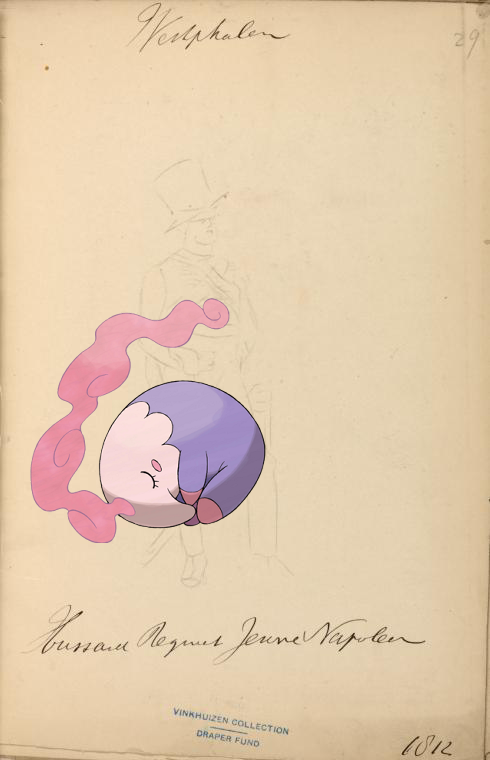 Westphalen
29
Hussard Regmet Jeune Napoleon
VINKHUIZEN COLLECTION
DRAPER FUND
1812